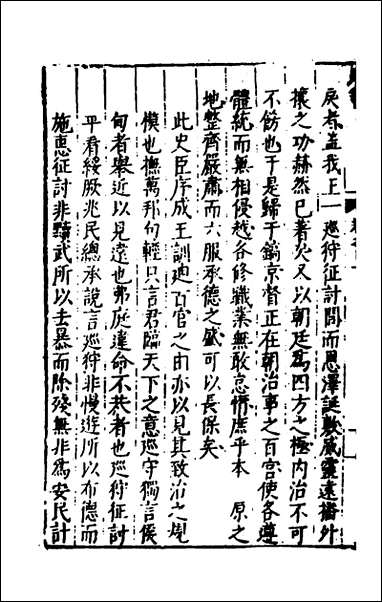 戾者盖我王一廵狩征討間而恩澤誕敷威靈遠播外
攘之功赫然已著矣又以朝廷為四方之極内治不可
不飭也于是歸于鎬京督正在朝治事之百官使各遵
體統而無相侵越各修職業無敢怠惰庶乎本 原之
地整齊嚴肅而六服承德之盛可以長保矣
此史臣序成王訓廸百官之由亦以見其致治之規
模也撫萬邦句輕只言君臨天下之意廵守獨言侯
甸者舉近以見遠也弗庭違命不共者也廵狩征討
平看綏厥兆民總承說言廵狩非慢遊所以布德而
施惠征討非黷武所以去暴而除殘無非為安民計